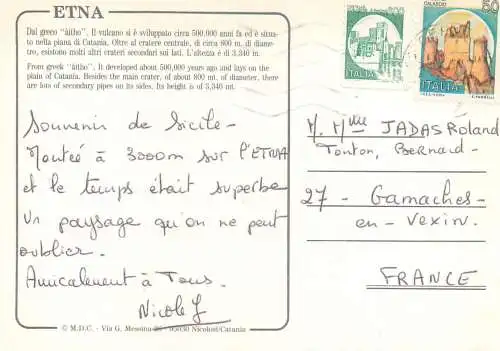 ETNA
Dal greco "àitho". Il vulcano si è sviluppato circa 500.000 anni fa ed è situa-
to nella piana di Catania. Oltre al cratere centrale, di circa 800 m. di diame-
tro, esistono molti altri crateri secondari sui lati. L'altezza è di 3.340 m.
From greek "àitho". It developed about 500,000 years ago and lays on the
plain of Catania. Besides the main crater, of about 800 mt. of diameter, there
are lots of secondary pipes on its sides. Its height is of 3,340 mt.
Souvenir de Sicile -
Montée à 3000m sur l'ETNA
et le temps était superbe
Un paysage qu'on ne peut
oublier.
Amicalement à Tous.
Nicole J
© M.D.C. - Via G. Messina 26 - 95030 Nicolosi/Catania
200
ITALIA
CALASCIO
50
ITALIA
M. Mme JADAS Roland
Tonton, Bernard -
27 - Gamaches -
en - Vexin.
FRANCE